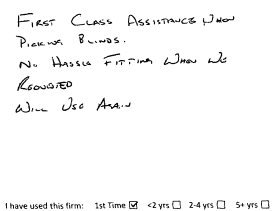 First Class Assistance When
Picking Blinds.
No Hassle Fitting When We
Requested
Will Use Again
I have used this firm: 1st Time ☑ <2 yrs ☐ 2-4 yrs ☐ 5+ yrs ☐